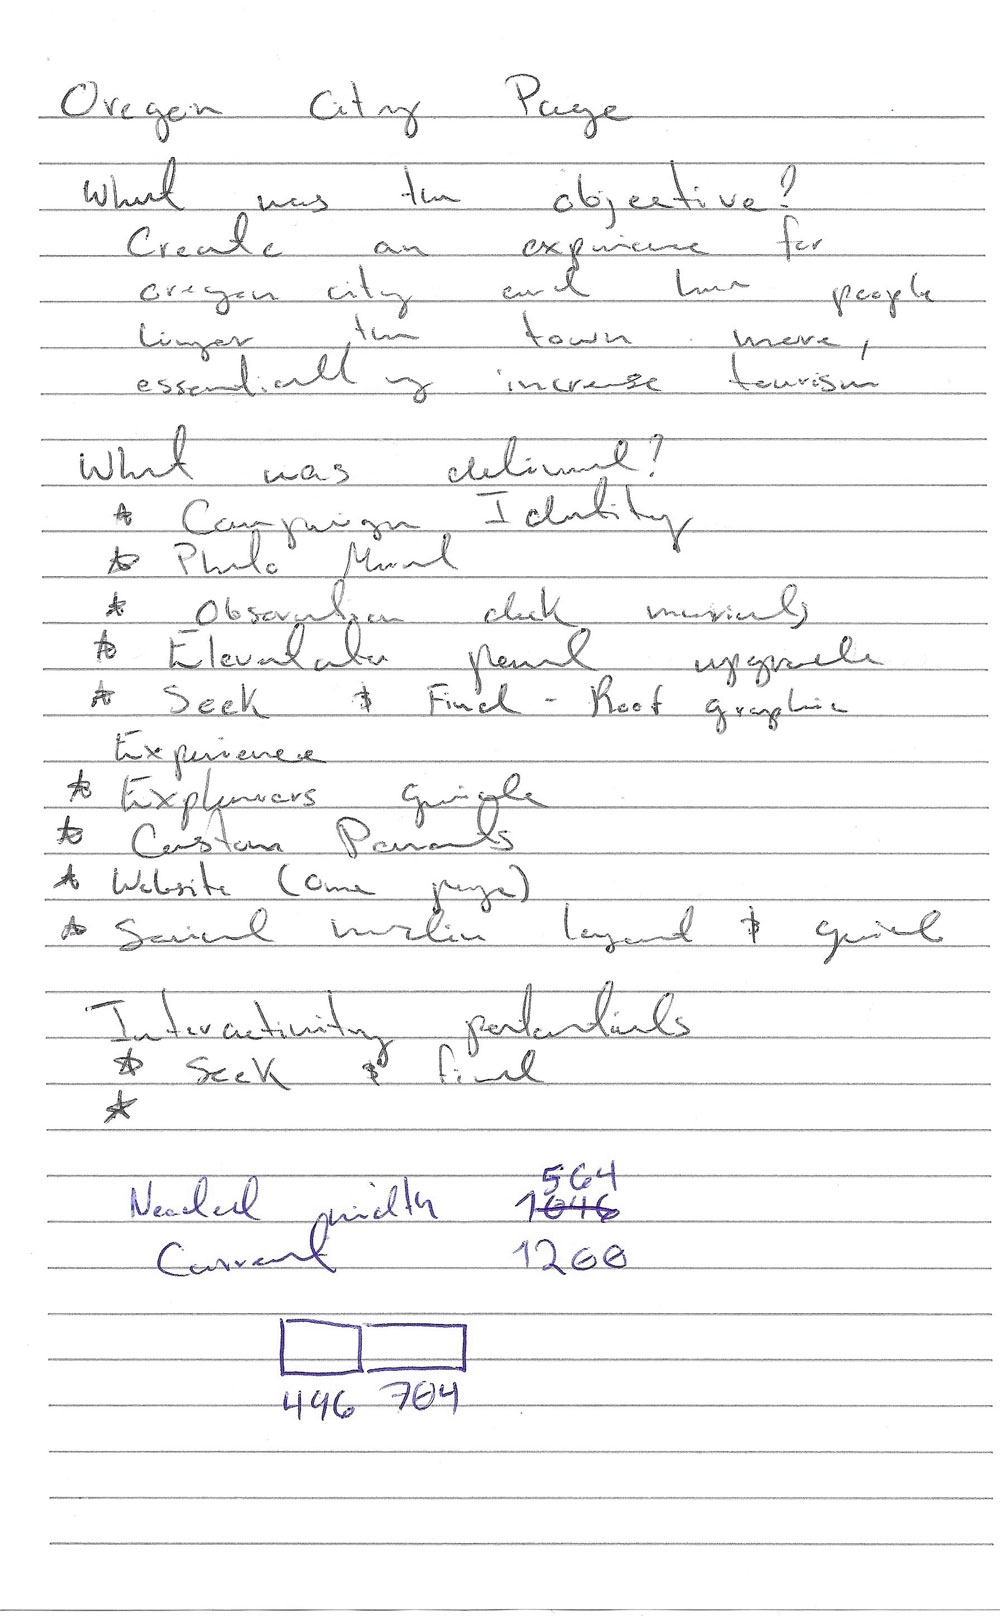 Oregon City Page
What was the objective?
Create an experience for
oregon city and have people
linger the town more,
essentially increase tourism
What was delivered?
* Campaign Identity
* Photo Mural
* Observation deck
* Elevator panel upgrade
* Seek & Find - Roof graphic
Experience
* Explorers guide
* Custom
* Website (One page)
* Social media layout & guide
Interactivity potentials
* Seek & find
*
564
Needed width 1046
Current 1200
496 704